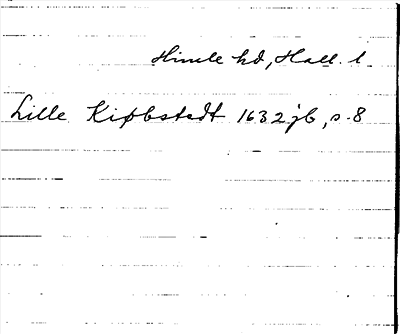 Himle hd, Hall. l.
Lille Kiøbstedt 1632 jb, s. 8